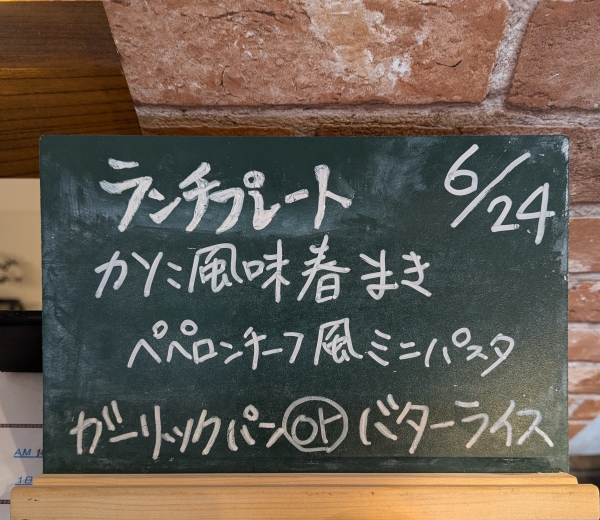 ランチプレート 6/24
かに風味春まき
ペペロンチーフ風ミニパスタ
ガーリックパン or バターライス
AM
1日